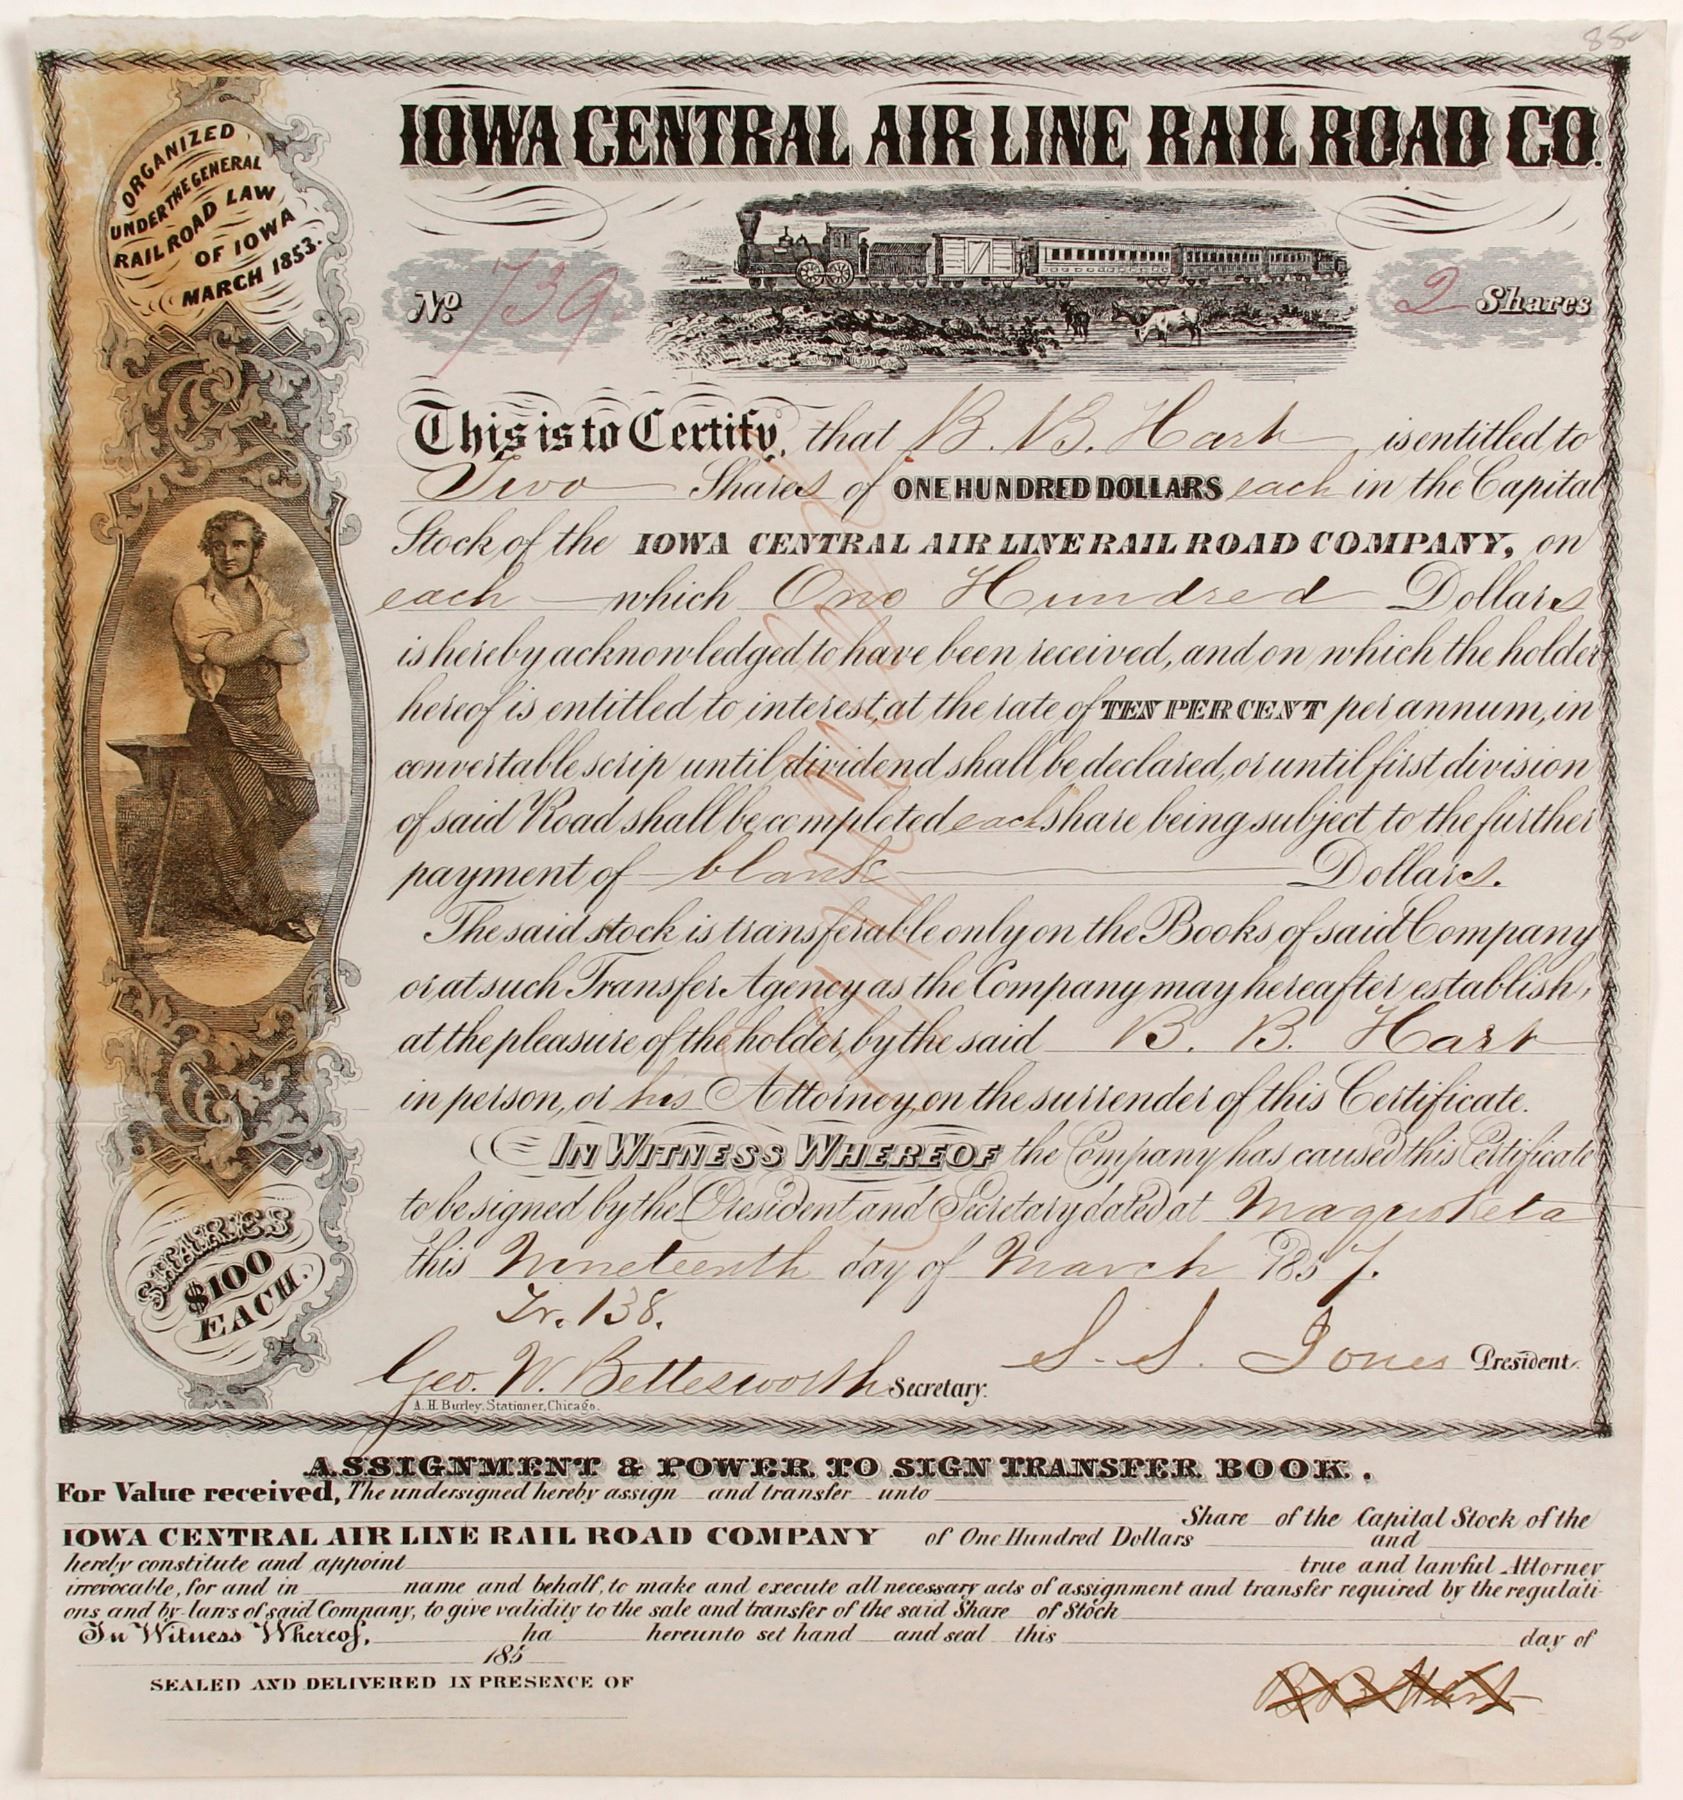 850
IOWA CENTRAL AIR LINE RAIL ROAD CO.
ORGANIZED
UNDER THE GENERAL
RAIL ROAD LAW
OF IOWA
MARCH 1853.
No. 739.
2 Shares
This is to Certify, that B. B. Hart is entitled to
Two Shares of ONE HUNDRED DOLLARS each in the Capital
Stock of the IOWA CENTRAL AIR LINE RAIL ROAD COMPANY, on
each which One Hundred Dollars
is hereby acknowledged to have been received, and on which the holder
hereof is entitled to interest, at the rate of TEN PER CENT per annum, in
convertable scrip until dividend shall be declared, or until first division
of said Road shall be completed each share being subject to the further
payment of blank Dollars.
The said stock is transferable only on the Books of said Company
or at such Transfer Agency as the Company may hereafter establish,
at the pleasure of the holder, by the said B. B. Hart
in person, or his Attorney, on the surrender of this Certificate.
IN WITNESS WHEREOF the Company has caused this Certificate
to be signed by the President and Secretary dated at Maquoketa
this Nineteenth day of March 1857.
SHARES
$100
EACH.
Tr. 138.
S. S. Jones President.
Geo. W. Bettesworth Secretary.
A. H. Burley, Stationer, Chicago.
ASSIGNMENT & POWER TO SIGN TRANSFER BOOK.
For Value received, The undersigned hereby assign and transfer unto
Share of the Capital Stock of the
IOWA CENTRAL AIR LINE RAIL ROAD COMPANY of One Hundred Dollars and
hereby constitute and appoint true and lawful Attorney
irrevocable, for and in name and behalf, to make and execute all necessary acts of assignment and transfer required by the regulati-
ons and by-laws of said Company, to give validity to the sale and transfer of the said Share of Stock
In Witness Whereof, ha hereunto set hand and seal this day of
185
SEALED AND DELIVERED IN PRESENCE OF
B. B. Hart